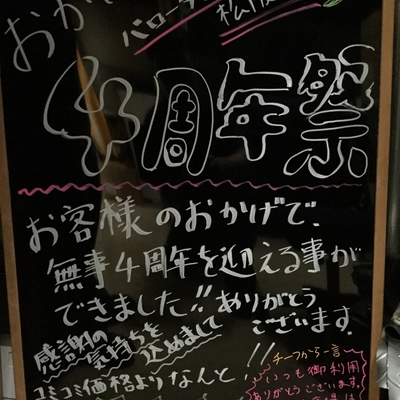 おか
バロー
松阪
4周年祭
お客様のおかげで、
無事4周年を迎える事が
できました!!ありがとう
ございます.
感謝の
気持ちを
込めまして
コミコミ価格よりなんと!!
チーフから一言
いつも御利用
ありがとうございます。